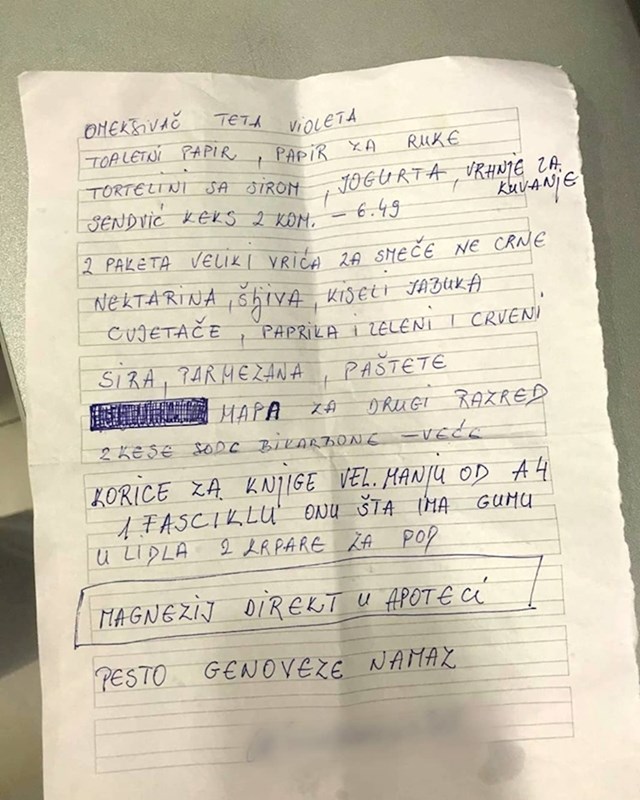 OMEKŠIVAČ TETA VIOLETA
TOALETNI PAPIR, PAPIR ZA RUKE
TORTELINI SA SIROM, JOGURTA, VRHNJE ZA KUVANJE
SENDVIĆ KEKS 2 KOM. – 6.49
2 PAKETA VELIKI VRIĆA ZA SMEČE NE CRNE
NEKTARINA, ŠLJIVA, KISELI JABUKA
CVJETAČE, PAPRIKA I ZELENI I CRVENI
SIRA, PARMEZANA, PAŠTETE
MAPA ZA DRUGI RAZRED
2 KESE SODE BIKARBONE – VEĆE
KORICE ZA KNJIGE VEL. MANJU OD A4
1 FASCIKLU ONU ŠTA IMA GUMU
U LIDLA 2 KRPARE ZA POD
MAGNEZIJ DIREKT U APOTECI
PESTO GENOVEZE NAMAZ